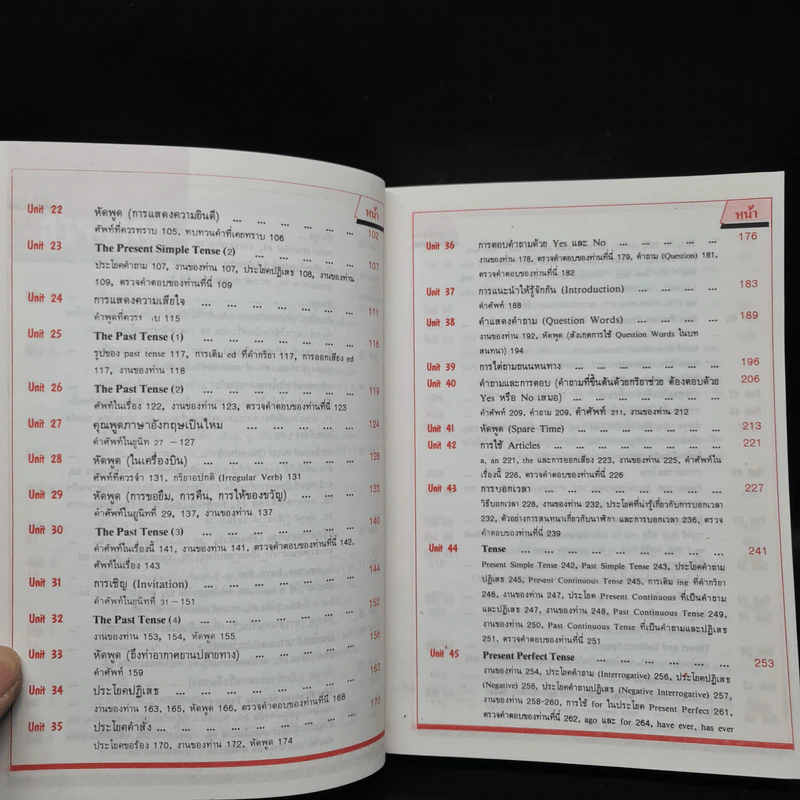 หน้า
Unit 22 หัดพูด (การแสดงความยินดี) ... ... ... ... ... 102
ศัพท์ที่ควรทราบ 105, ทบทวนคำที่เคยทราบ 106
Unit 23 The Present Simple Tense (2) ... ... ... ... 107
ประโยคคำถาม 107, งานของท่าน 107, ประโยคปฏิเสธ 108, งานของท่าน
109, ตรวจคำตอบของท่านที่นี่ 109
Unit 24 การแสดงความเสียใจ ... ... ... ... ... ... 111
คำพูดที่ควร 115
Unit 25 The Past Tense (1) ... ... ... ... ... ... 116
รูปของ past tense 117, การเติม ed ที่คำกริยา 117, การออกเสียง ed
117, งานของท่าน 118
Unit 26 The Past Tense (2) ... ... ... ... ... ... 119
ศัพท์ในเรื่อง 122, งานของท่าน 123, ตรวจคำตอบของท่านที่นี่ 123
Unit 27 คุณพูดภาษาอังกฤษเป็นไหม ... ... ... ... ... 124
คำศัพท์ในยูนิท 27 -127
Unit 28 หัดพูด (ในเครื่องบิน) ... ... ... ... ... ... 128
ศัพท์ที่ควรจำ 131, กริยาอปกติ (Irregular Verb) 131
Unit 29 หัดพูด (การขอยืม, การคืน, การให้ของขวัญ) ... ... ... 133
คำศัพท์ในยูนิทที่ 29, 137, งานของท่าน 137
Unit 30 The Past Tense (3) ... ... ... ... ... ... 140
คำศัพท์ในเรื่องนี้ 141, งานของท่าน 141, ตรวจคำตอบของท่านที่นี่ 142,
ศัพท์ในเรื่อง 143
Unit 31 การเชิญ (Invitation) ... ... ... ... ... ... 144
คำศัพท์ในยูนิทที่ 31-151
Unit 32 The Past Tense (4) ... ... ... ... ... ... 152
งานของท่าน 153, 154, หัดพูด 155
Unit 33 หัดพูด (ถึงท่าอากาศยานปลายทาง) ... ... ... ... 156
คำศัพท์ 159
Unit 34 ประโยคปฏิเสธ ... ... ... ... ... ... ... 163
งานของท่าน 163, 165, หัดพูด 166, ตรวจคำตอบของท่านที่นี่ 168
Unit 35 ประโยคคำสั่ง ... ... ... ... ... ... ... 170
ประโยคขอร้อง 170, งานของท่าน 172, หัดพูด 174
หน้า
Unit 36 การตอบคำถามด้วย Yes และ No ... ... ... ... ... 176
งานของท่าน 178, ตรวจคำตอบของท่านที่นี่ 179, คำถาม (Question) 181,
ตรวจคำตอบของท่านที่นี่ 182
Unit 37 การแนะนำให้รู้จักกัน (Introduction) ... ... ... ... 183
คำศัพท์ 188
Unit 38 คำแสดงคำถาม (Question Words) ... ... ... ... 189
งานของท่าน 192, หัดพูด (สังเกตการใช้ Question Words ในบท
สนทนา) 194
Unit 39 การไต่ถามถนนหนทาง ... ... ... ... ... ... 196
Unit 40 คำถามและการตอบ (คำถามที่ขึ้นต้นด้วยกริยาช่วย ต้องตอบด้วย 206
Yes หรือ No เสมอ) ... ... ... ... ... ...
คำศัพท์ 209, คำถาม 209, คำศัพท์ 211, งานของท่าน 212
Unit 41 หัดพูด (Spare Time) ... ... ... ... ... ... 213
Unit 42 การใช้ Articles ... ... ... ... ... ... ... 221
a, an 221, the และการออกเสียง 223, งานของท่าน 225, คำศัพท์ใน
เรื่องนี้ 226, ตรวจคำตอบของท่านที่นี่ 226
Unit 43 การบอกเวลา ... ... ... ... ... ... ... 227
วิธีบอกเวลา 228, งานของท่าน 232, ประโยคที่น่ารู้เกี่ยวกับการบอกเวลา
232, ตัวอย่างการสนทนาเกี่ยวกับนาฬิกา และการบอกเวลา 236, ตรวจ
คำตอบของท่านที่นี่ 239
Unit 44 Tense ... ... ... ... ... ... ... ... 241
Present Simple Tense 242, Past Simple Tense 243, ประโยคคำถาม
ปฏิเสธ 245, Present Continuous Tense 245, การเติม ing ที่คำกริยา
246, งานของท่าน 247, ประโยค Present Continuous ที่เป็นคำถาม
และปฏิเสธ 247, งานของท่าน 248, Past Continuous Tense 249,
งานของท่าน 250, Past Continuous Tense ที่เป็นคำถามและปฏิเสธ
251, ตรวจคำตอบของท่านที่นี่ 251
Unit 45 Present Perfect Tense ... ... ... ... ... ... 253
งานของท่าน 254, ประโยคคำถาม (Interrogative) 256, ประโยคปฏิเสธ
(Negative) 256, ประโยคคำถามปฏิเสธ (Negative Interrogative) 257,
งานของท่าน 258-260, การใช้ for ในประโยค Present Perfect 261,
ตรวจคำตอบของท่านที่นี่ 262, ago และ for 264, have ever, has ever